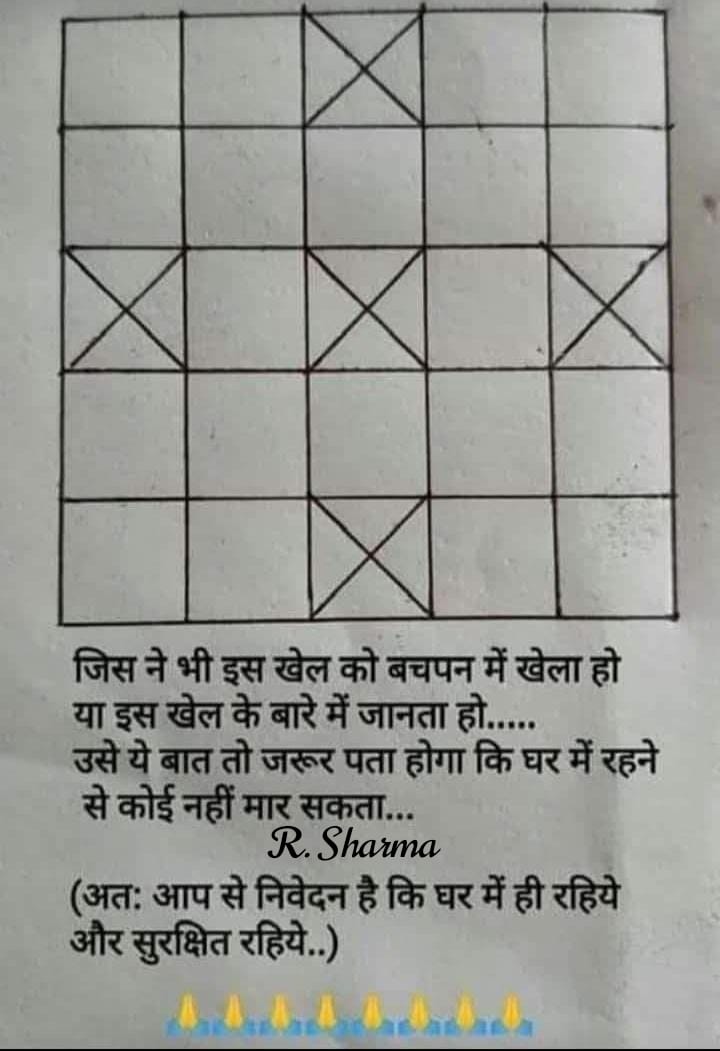 जिस ने भी इस खेल को बचपन में खेला हो
या इस खेल के बारे में जानता हो.....
उसे ये बात तो जरूर पता होगा कि घर में रहने
से कोई नहीं मार सकता...
R. Sharma
(अत: आप से निवेदन है कि घर में ही रहिये
और सुरक्षित रहिये..)
🙏🙏🙏🙏🙏🙏🙏🙏